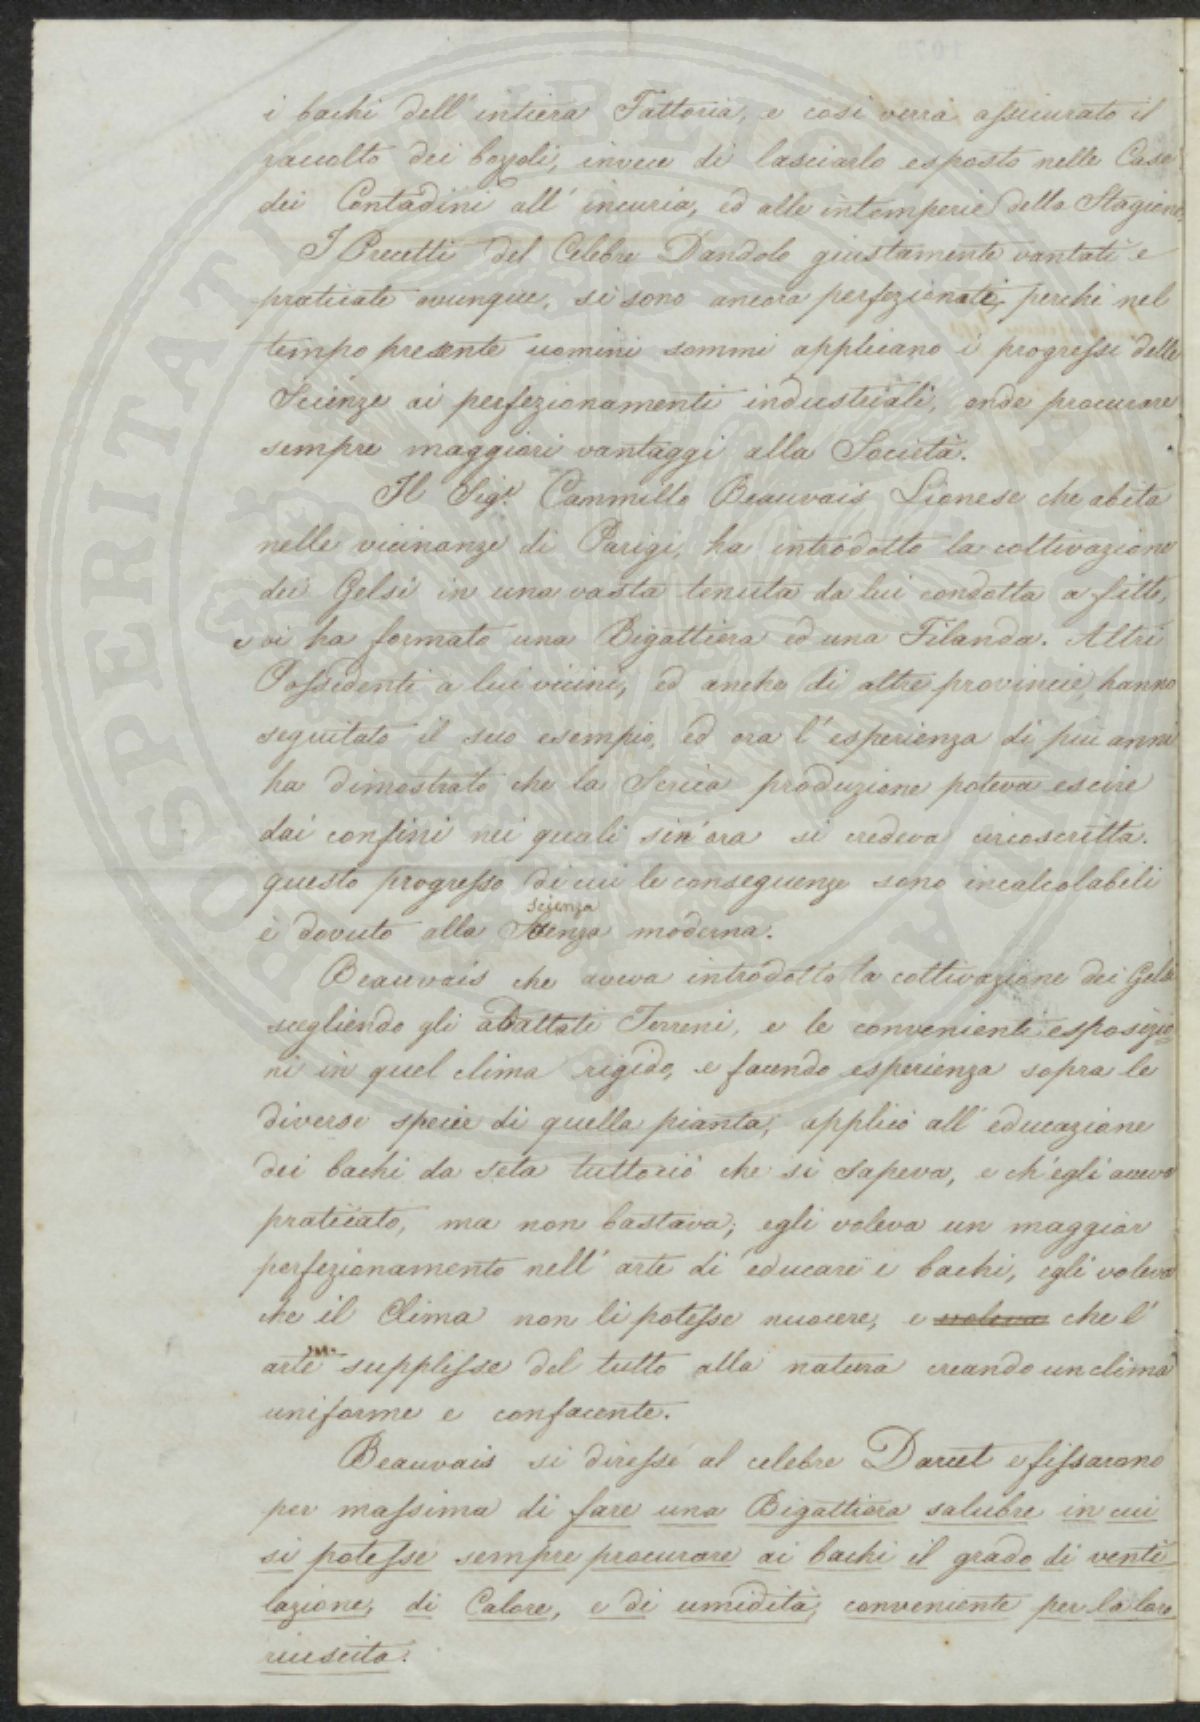 i bachi dell' intiera Fattoria, e così verrà assicurato il
raccolto dei bozzoli, invece di lasciarlo esposto nelle Case
dei Contadini all' incuria, ed alle intemperie della Stagione.
I Precetti del Celebre Dandolo giustamente vantati e
praticate ovunque, si sono ancora perfezionati, perchè nel
tempo presente uomini sommi applicano i progressi delle
Scienze ai perfezionamenti industriali, onde procurare
sempre maggiori vantaggi alla Società.
Il Sigr. Cammillo Beauvais Lionese che abita
nelle vicinanze di Parigi, ha introdotto la coltivazione
dei Gelsi in una vasta tenuta da lui condotta a fitto,
e vi ha formato una Bigattiera ed una Filanda. Altri
Possedenti a lui vicini, ed anche di altre provincie, hanno
seguitato il suo esempio, ed ora l' esperienza di più anni
ha dimostrato che la Serica produzione poteva escire
dai confini nei quali sin' ora si credeva circoscritta.
questo progresso di cui le conseguenze sono incalcolabili
scienza
è dovuto alla moderna.
Beauvais che aveva introdotto la coltivazione dei Gelsi
scegliendo gli adattati Terreni, e le convenienti esposizio=
ni in quel clima rigido, e facendo esperienza sopra le
diverse specie di quella pianta, applicò all' educazione
dei bachi da seta tuttociò che si sapeva, e ch' egli aveva
praticato, ma non bastava; egli voleva un maggior
perfezionamento nell' arte di educare i bachi, egli voleva
che il Clima non li potesse nuocere, e voleva che l'
arte supplisse del tutto alla natura creando un clima
uniforme e confacente.
Beauvais si diresse al celebre Darcet e fissarono
per massima di fare una Bigattiera salubre in cui
si potesse sempre procurare ai bachi il grado di venti
lazione, di Calore, e di umidità, conveniente per la loro
riuscita.
PROSPERITATI